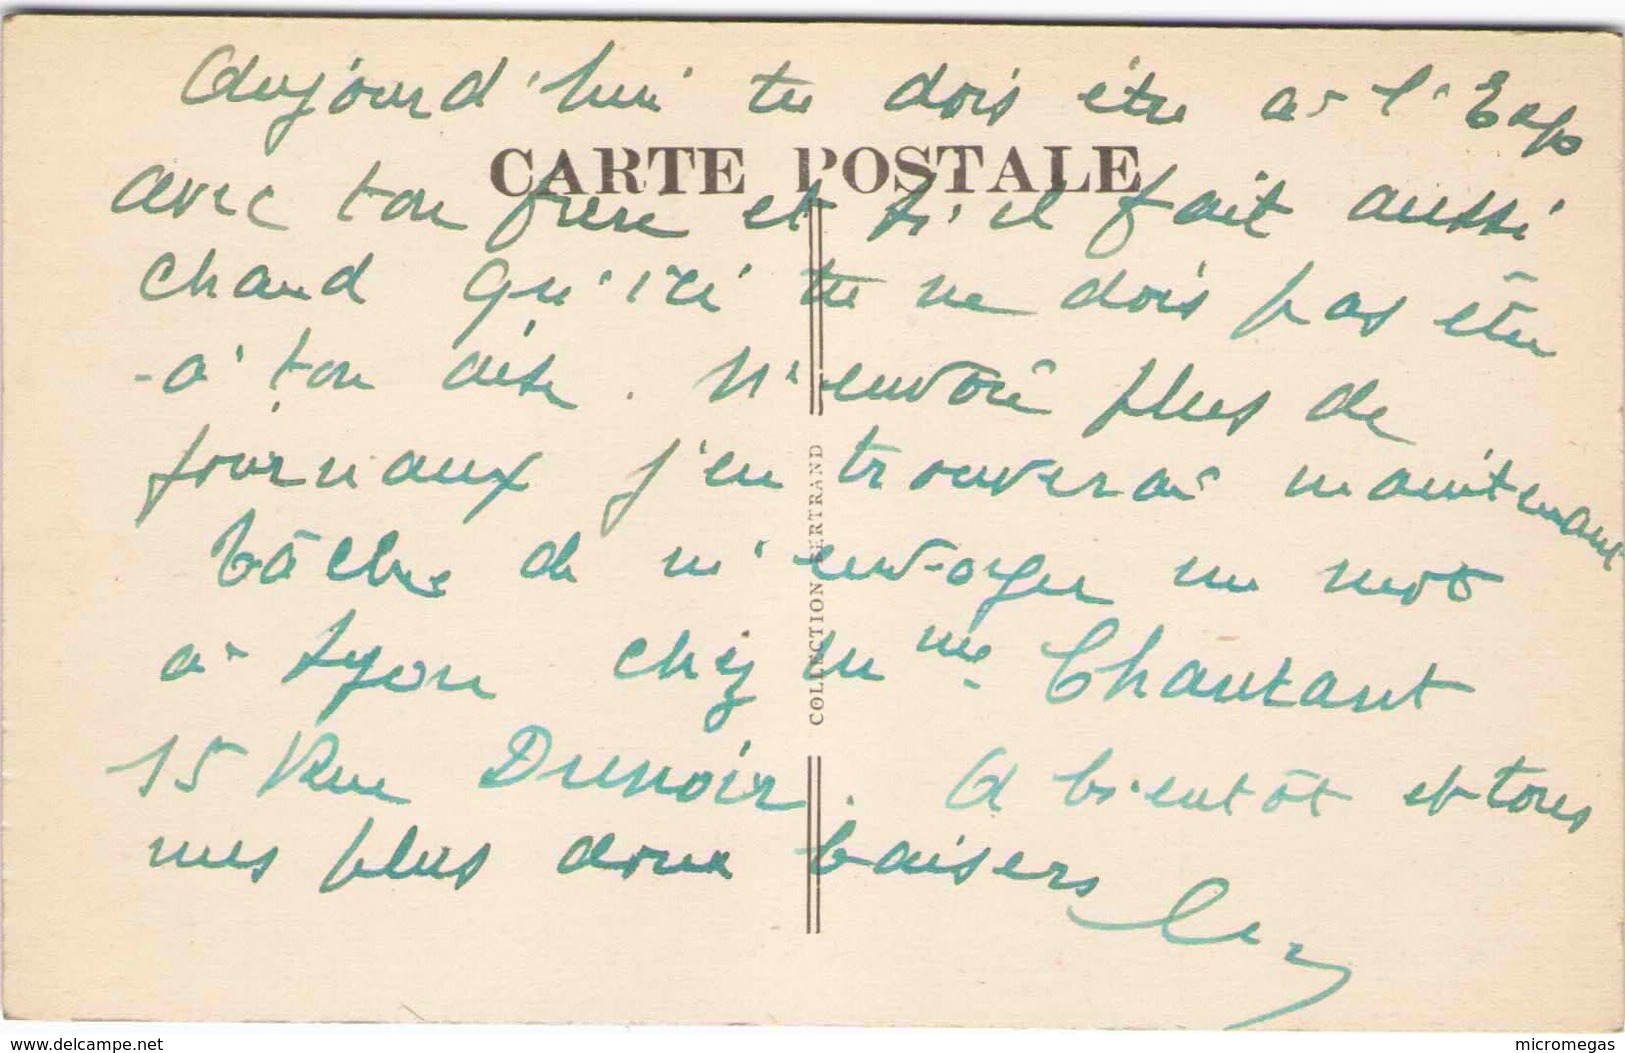 Aujourd'hui tu dois être à l'Expo
CARTE POSTALE
avec ton frère et s'il fait aussi
chaud qu'ici tu ne dois pas être
à ton aise. N'envoie plus de
journaux j'en trouverai maintenant
COLLECTION BERTRAND
Tâche de m'envoyer un mot
à Lyon chez Mme Chantant
15 Rue Dunoir. A bientôt et tous
mes plus doux baisers
www.delcampe.net
micromegas